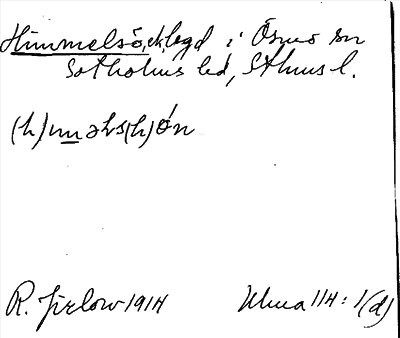 Himmelsö, ek, lagd i Ösmo sn
Sotholms hd, Sthms l.
(h)iməls(h)ön
R. Jirlow 1914
Ulma 114:1(d)